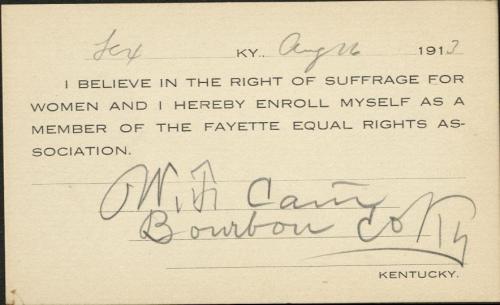 Lex KY., Aug 26 1913
I BELIEVE IN THE RIGHT OF SUFFRAGE FOR
WOMEN AND I HEREBY ENROLL MYSELF AS A
MEMBER OF THE FAYETTE EQUAL RIGHTS AS-
SOCIATION.
Bourbon Co Ky
KENTUCKY.